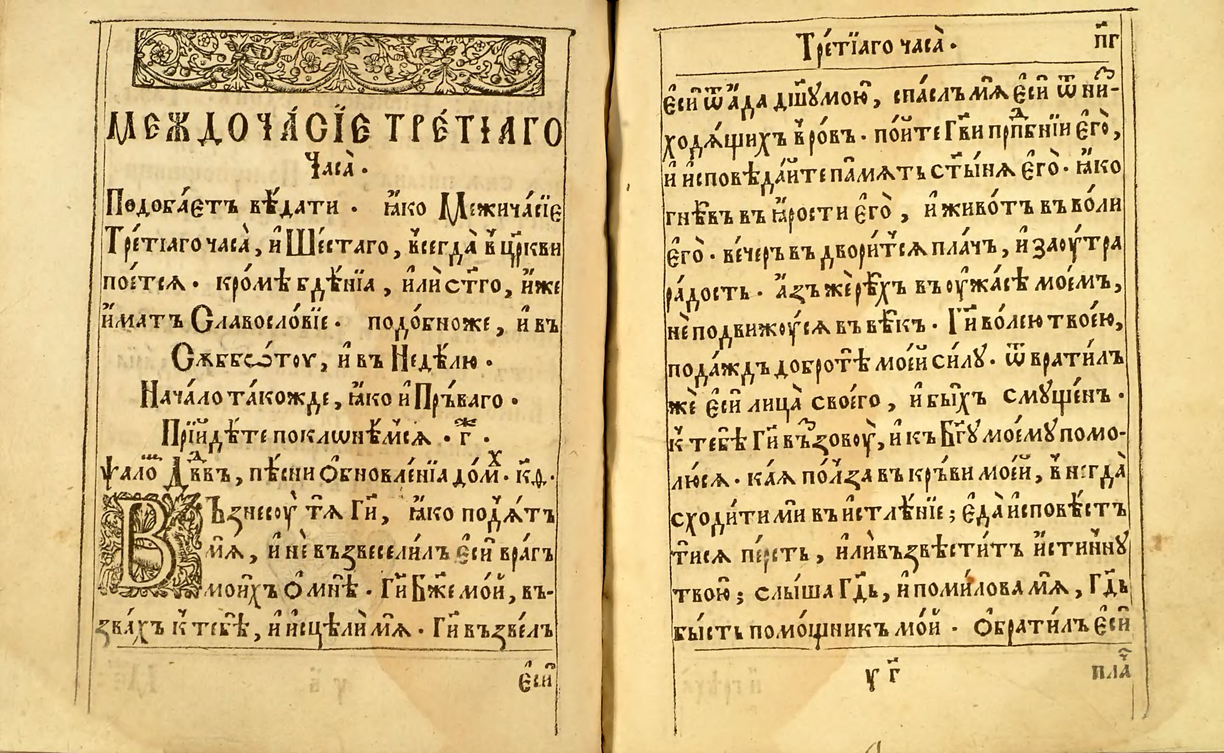 МЕЖДОЧА́СЇЕ ТРЕ́ТЇАГО
Часа̀.
Подоба́етъ вѣ́дати. ꙗ҆́ко Межича́сїе
Тре́тїаго часа̀, и҆ Ше́стаго, в҆сегда̀ в҆ цр҃кви
пое́тсѧ. кро́мѣ бдѣ́нїа, и҆лѝ ст҃го, и҆́же
и҆́матъ Славосло́вїе. подо́бноже, и҆ въ
Сѫббѡ́тоу, и҆ въ Недѣ́лю.
Нача́ло та́кожде, ꙗ҆́ко и҆ Пръ́ваго.
Прїйдѣ́те поклѡнѣ́мсѧ. г҃ⷤ.
Ѱало́ⷨ Дв҃ⷣвъ, пѣ́сни ѻ҆бновле́нїа до́мⷯ. к҃ѳ.
Възнесоу́ тѧ Гс҃и, ꙗ҆́ко под̾ѧ́тъ
мѧ̀, и҆ нѐ възвесели́лъ є҆сѝ вра́гъ
мои́хъ ѻ҆ мнѣ̀. Гс҃и Бж҃е мо́й, въ-
зва́хъ к҆ тебѣ̀, и҆ и҆сцѣлѝ мѧ̀. Гс҃и възве́лъ
є҆сѝ
Тре́тїаго часа̀. п҃г
є҆сѝ ѿ а҆́да дш҃у мою̀, сп҃аслъ мѧ̀ є҆сѝ ѿ ни-
ходѧ́щихъ в҆ ро́въ. по́йте Гс҃ви прпⷣбнїи є҆гѡ̀,
и҆ и҆сповѣ́дайте па́мѧть ст҃ы́нѧ є҆гѡ̀. ꙗ҆́ко
гнѣ́въ въ ꙗ҆́рости є҆гѡ̀, и҆ живо́тъ въ во́ли
є҆гѡ̀. ве́черъ въдвори́тсѧ пла́чь, и҆ заоу́тра
ра́дость. а҆́зъ жѐ рѣ́хъ въ оу҆́жасѣ мое́мъ,
нѐ подви́жоусѧ въ вѣ́къ. Гс҃и во́лею твое́ю,
пода́ждъ добро́тѣ мое́й си́лу. ѿврати́лъ
жѐ є҆сѝ лица̀ своего̀, и҆ бы́хъ смꙋще́нъ.
к҆ тебѣ̀ Гс҃и възовоу̀, и҆ къ Бг҃у моемꙋ̀ помо-
лю́сѧ. ка́ѧ по́лза въ кръ́ви мое́й, в҆негда̀
сходи́ти мѝ въ и҆стлѣ́нїе; є҆да̀ и҆сповѣ́стъ
тисѧ пе́рсть, и҆лѝ възвѣсти́тъ и҆́стиннꙋ
твою̀; слы́ша Гс҃дь, и҆ поми́лова мѧ̀, Гс҃дь
бы́сть помо́щникъ мо́й. Ѻ҆брати́лъ є҆сѝ
у г҃ пла́ⷱ